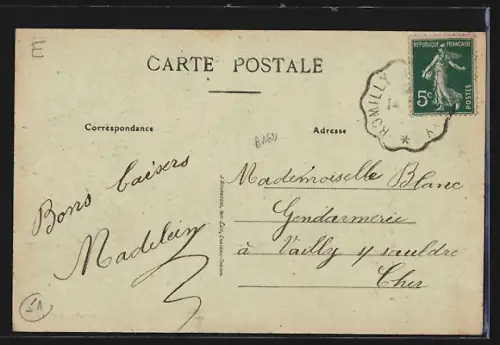 E
CARTE POSTALE
REPUBLIQUE FRANÇAISE
5c
POSTES
ROMILLY
Correspondance
Adresse
B162
Bons baisers
Madelein
Mademoiselle Blanc
Gendarmerie
à Vailly s/ sauldre
Cher